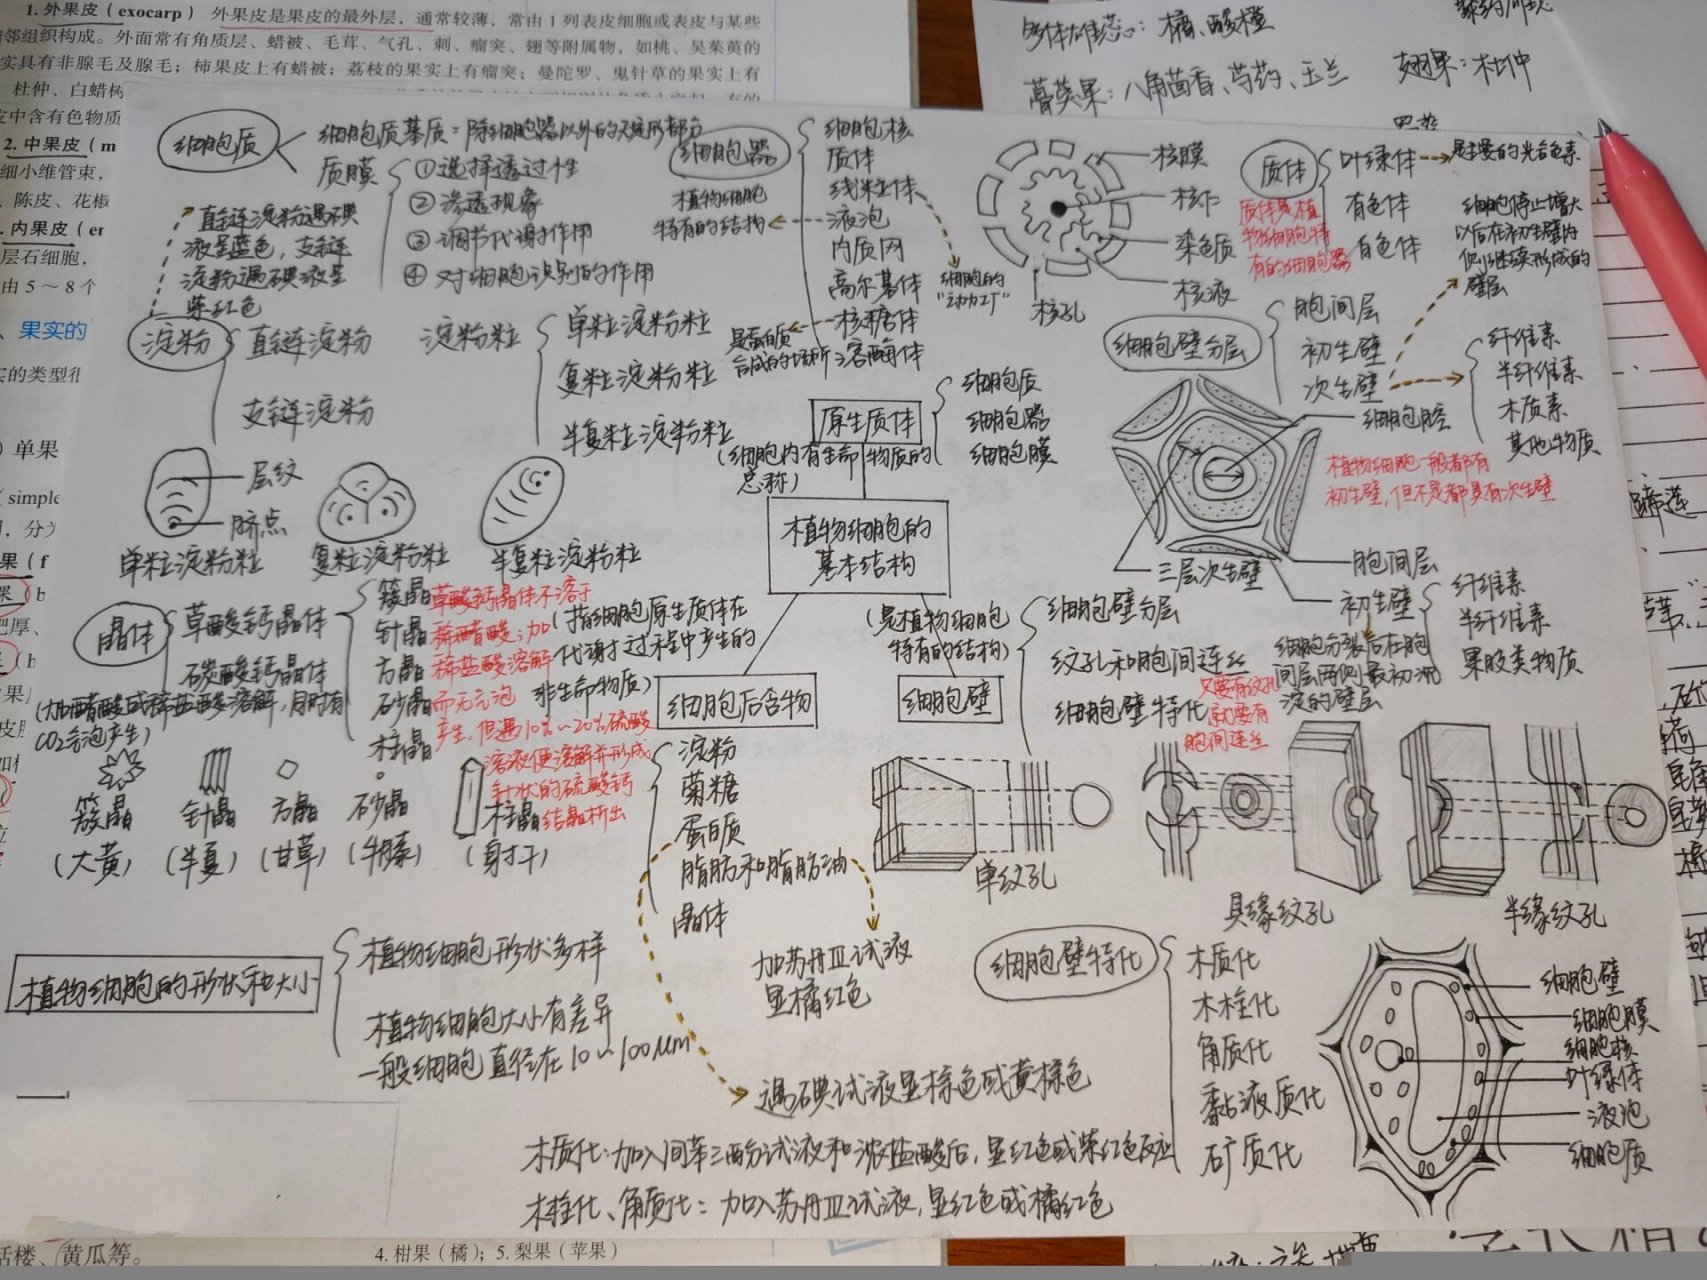 1. 外果皮（exocarp） 外果皮是果皮的最外层，通常较薄，常由1列表皮细胞或表皮与某些
邻组织构成。外面常有角质层、蜡被、毛茸、气孔、刺、瘤突、翅等附属物，如桃、吴茱萸的
实具有非腺毛及腺毛；柿果皮上有蜡被；荔枝的果实上有瘤突；曼陀罗、鬼针草的果实上有
杜仲、白蜡树
皮中含有色物质
2. 中果皮（m
细小维管束，
陈皮、花椒
内果皮（er
层石细胞，
由5～8个
果实的
实的类型很
）单果
（simple
，分为
果（f
多体雄蕊：橘、酸橙
蓇葖果：八角茴香、芍药、玉兰
翅果：杜仲
细胞质
细胞质基质：除细胞器以外的无定形部分
质膜
①选择透过性
②渗透现象
③调节代谢作用
④对细胞识别的作用
直链淀粉遇碘
液显蓝色，支链
淀粉遇碘液显
紫红色
淀粉
直链淀粉
支链淀粉
淀粉粒
单粒淀粉粒
复粒淀粉粒
半复粒淀粉粒
层纹
脐点
单粒淀粉粒
复粒淀粉粒
半复粒淀粉粒
细胞器
植物细胞
特有的结构
细胞核
质体
线粒体
液泡
内质网
高尔基体
核糖体
溶酶体
细胞的
“动力工厂”
是蛋白质
合成的场所
核膜
核仁
染色质
核液
核孔
质体
叶绿体
有色体
白色体
最主要的光合色素
质体是植
物细胞特
有的细胞器
细胞停止增大
以后在初生壁内
侧继续形成的
壁层
细胞壁分层
胞间层
初生壁
次生壁
纤维素
半纤维素
木质素
其他物质
细胞腔
植物细胞一般都有
初生壁，但不是都具有次生壁
三层次生壁
胞间层
初生壁
纤维素
半纤维素
果胶类物质
细胞分裂后在胞
间层两侧最初沉
淀的壁层
原生质体
（细胞内有生命物质的
总称）
细胞质
细胞器
细胞膜
植物细胞的
基本结构
晶体
草酸钙晶体
碳酸钙晶体
（加醋酸或稀盐酸溶解，同时有
CO₂气泡产生）
簇晶
针晶
方晶
砂晶
柱晶
草酸钙晶体不溶于
稀醋酸；加
稀盐酸溶解
而无气泡
产生，但遇10%～20%硫酸
溶液便溶解并形成
针状的硫酸钙
结晶析出
簇晶
（大黄）
针晶
（半夏）
方晶
（甘草）
砂晶
（牛膝）
柱晶
（射干）
（指细胞原生质体在
代谢过程中产生的
非生命物质）
细胞后含物
淀粉
菊糖
蛋白质
脂肪和脂肪油
晶体
加苏丹Ⅲ试液
显橘红色
遇碘试液显棕色或黄棕色
（是植物细胞
特有的结构）
细胞壁
细胞壁分层
纹孔和胞间连丝
细胞壁特化
只要有纹孔
就要有
胞间连丝
单纹孔
具缘纹孔
半缘纹孔
植物细胞的形状和大小
植物细胞形状多样
植物细胞大小有差异
一般细胞直径在10～100μm
细胞壁特化
木质化
木栓化
角质化
黏液质化
矿质化
细胞壁
细胞膜
细胞核
叶绿体
液泡
细胞质
木质化：加入间苯三酚试液和浓盐酸后，显红色或紫红色反应
木栓化、角质化：加入苏丹Ⅲ试液，显红色或橘红色
黄瓜等。
4. 柑果（橘）；5. 梨果（苹果）